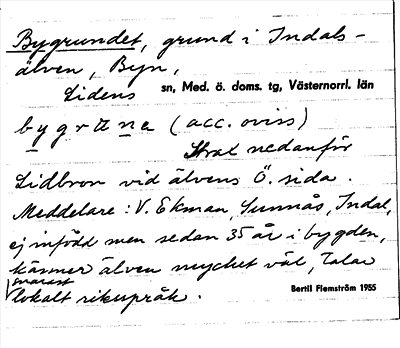 Bygrundet, grund i Indals-
älven, Byn,
Lidens sn, Med. ö. doms. tg, Västernorrl. län
bygrune (acc. oviss)
Strax nedanför
Lidbron vid älvens Ö. sida.
Meddelare: V. Ekman, Sunnås, Indal,
ej infödd men sedan 35 år i bygden,
känner älven mycket väl, talar
snarast
lokalt rikspråk.
Bertil Flemström 1955